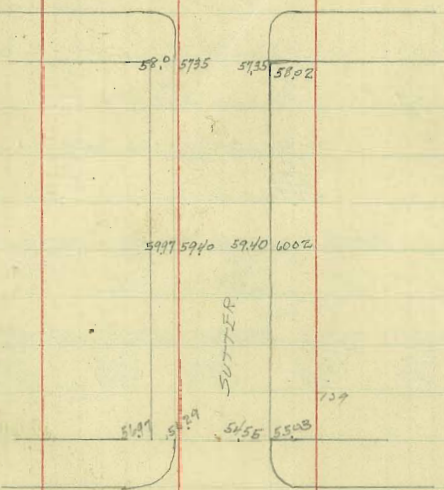 58.0 5735 5735 58.02
5997 5940 59.40 6002
SUTTER
5697 5629 5455 5503